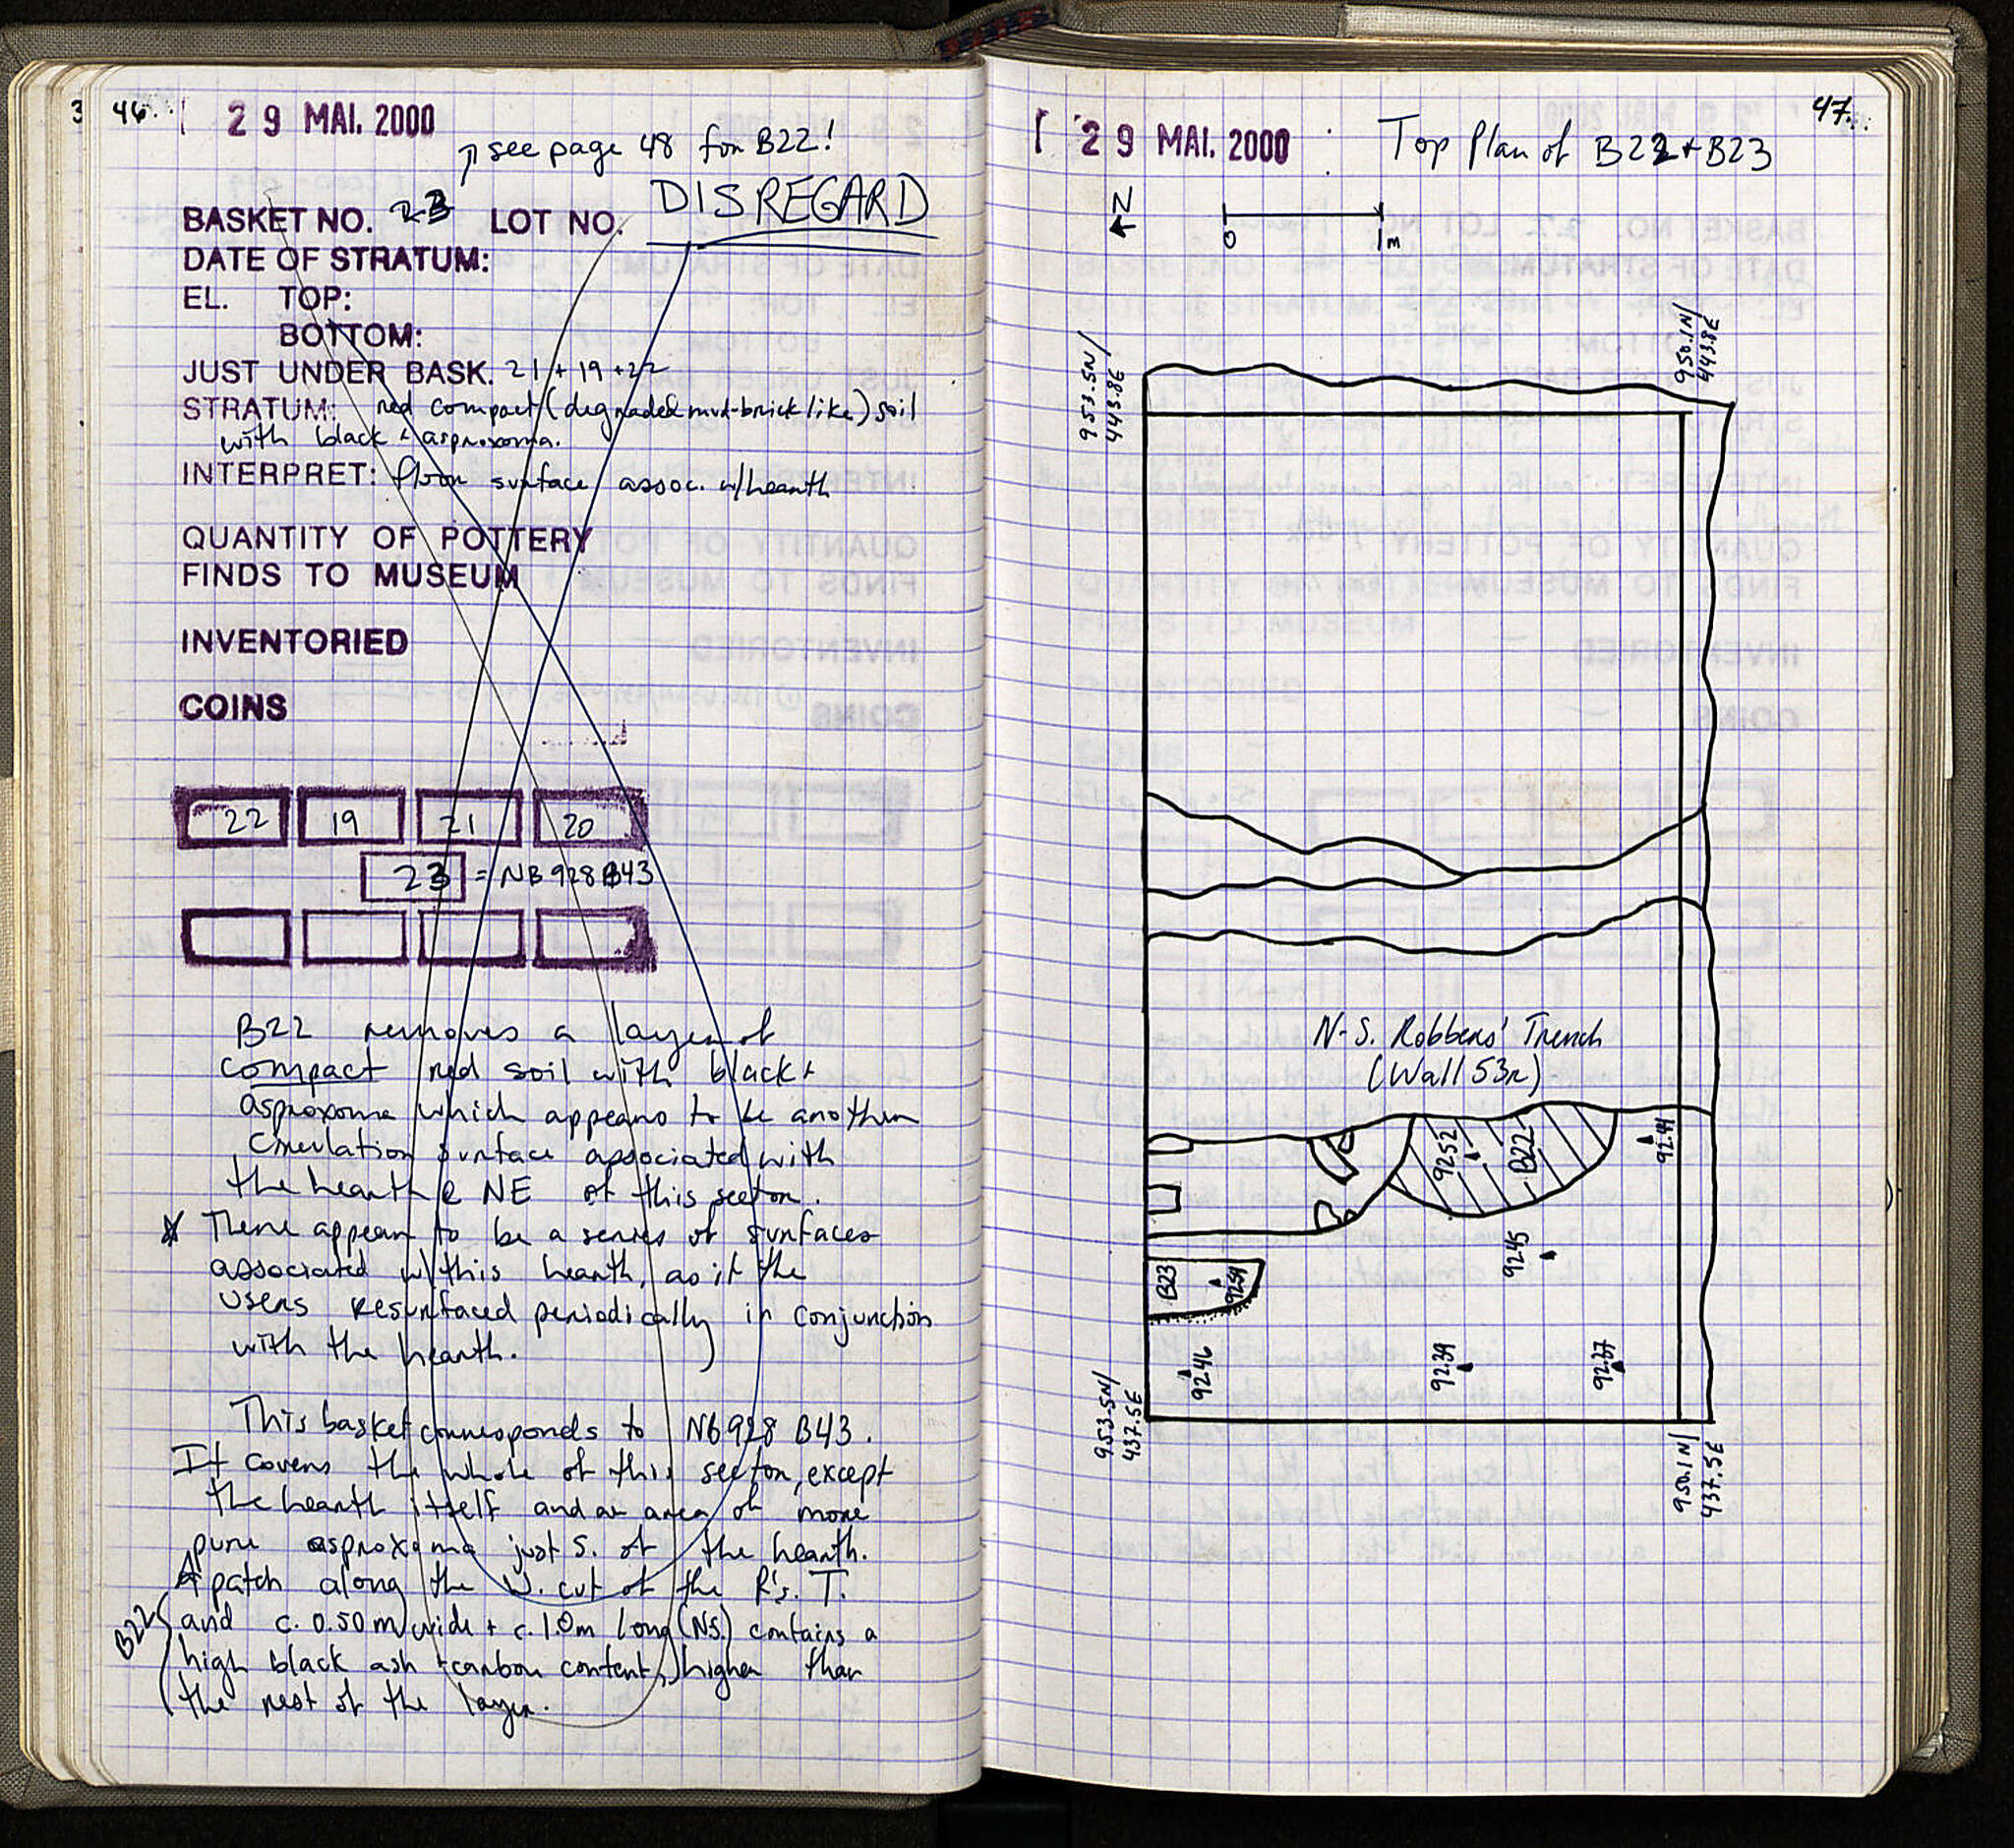 46.
29 MAI. 2000
see page 48 for B22!
DISREGARD
BASKET NO. 23 LOT NO.
DATE OF STRATUM:
EL. TOP:
BOTTOM:
JUST UNDER BASK. 21 + 19 + 22
STRATUM: red compact (degraded mud-brick like) soil
with black + asproxoma.
INTERPRET: floor surface assoc. w/hearth
QUANTITY OF POTTERY
FINDS TO MUSEUM
INVENTORIED
COINS
22 19 21 20
23 = NB 928 B43
B22 removes a layer of
compact red soil with black +
asproxoma which appears to be another
circulation surface associated with
the hearth @ NE of this sector.
* There appear to be a series of surfaces
associated w/ this hearth, as if the
users resurfaced periodically in conjunction
with the hearth.
This basket corresponds to NB928 B43.
It covers the whole of this sector, except
the hearth itself and an area of more
pure asproxoma just S. of the hearth.
A patch along the W. cut of the R's. T.
and c. 0.50 m wide + c. 1.0m long (NS.) contains a
B22
high black ash + carbon content, higher than
the rest of the layer.
47.
29 MAI. 2000
Top Plan of B22 + B23
N
0 1m
953.5N/
443.8E
950.1N/
443.8E
N-S. Robbers' Trench
(Wall 53r)
92.52
B22
92.41
92.45
B23
92.59
92.46
92.39
92.37
953.5N/
437.5E
950.1N/
437.5E